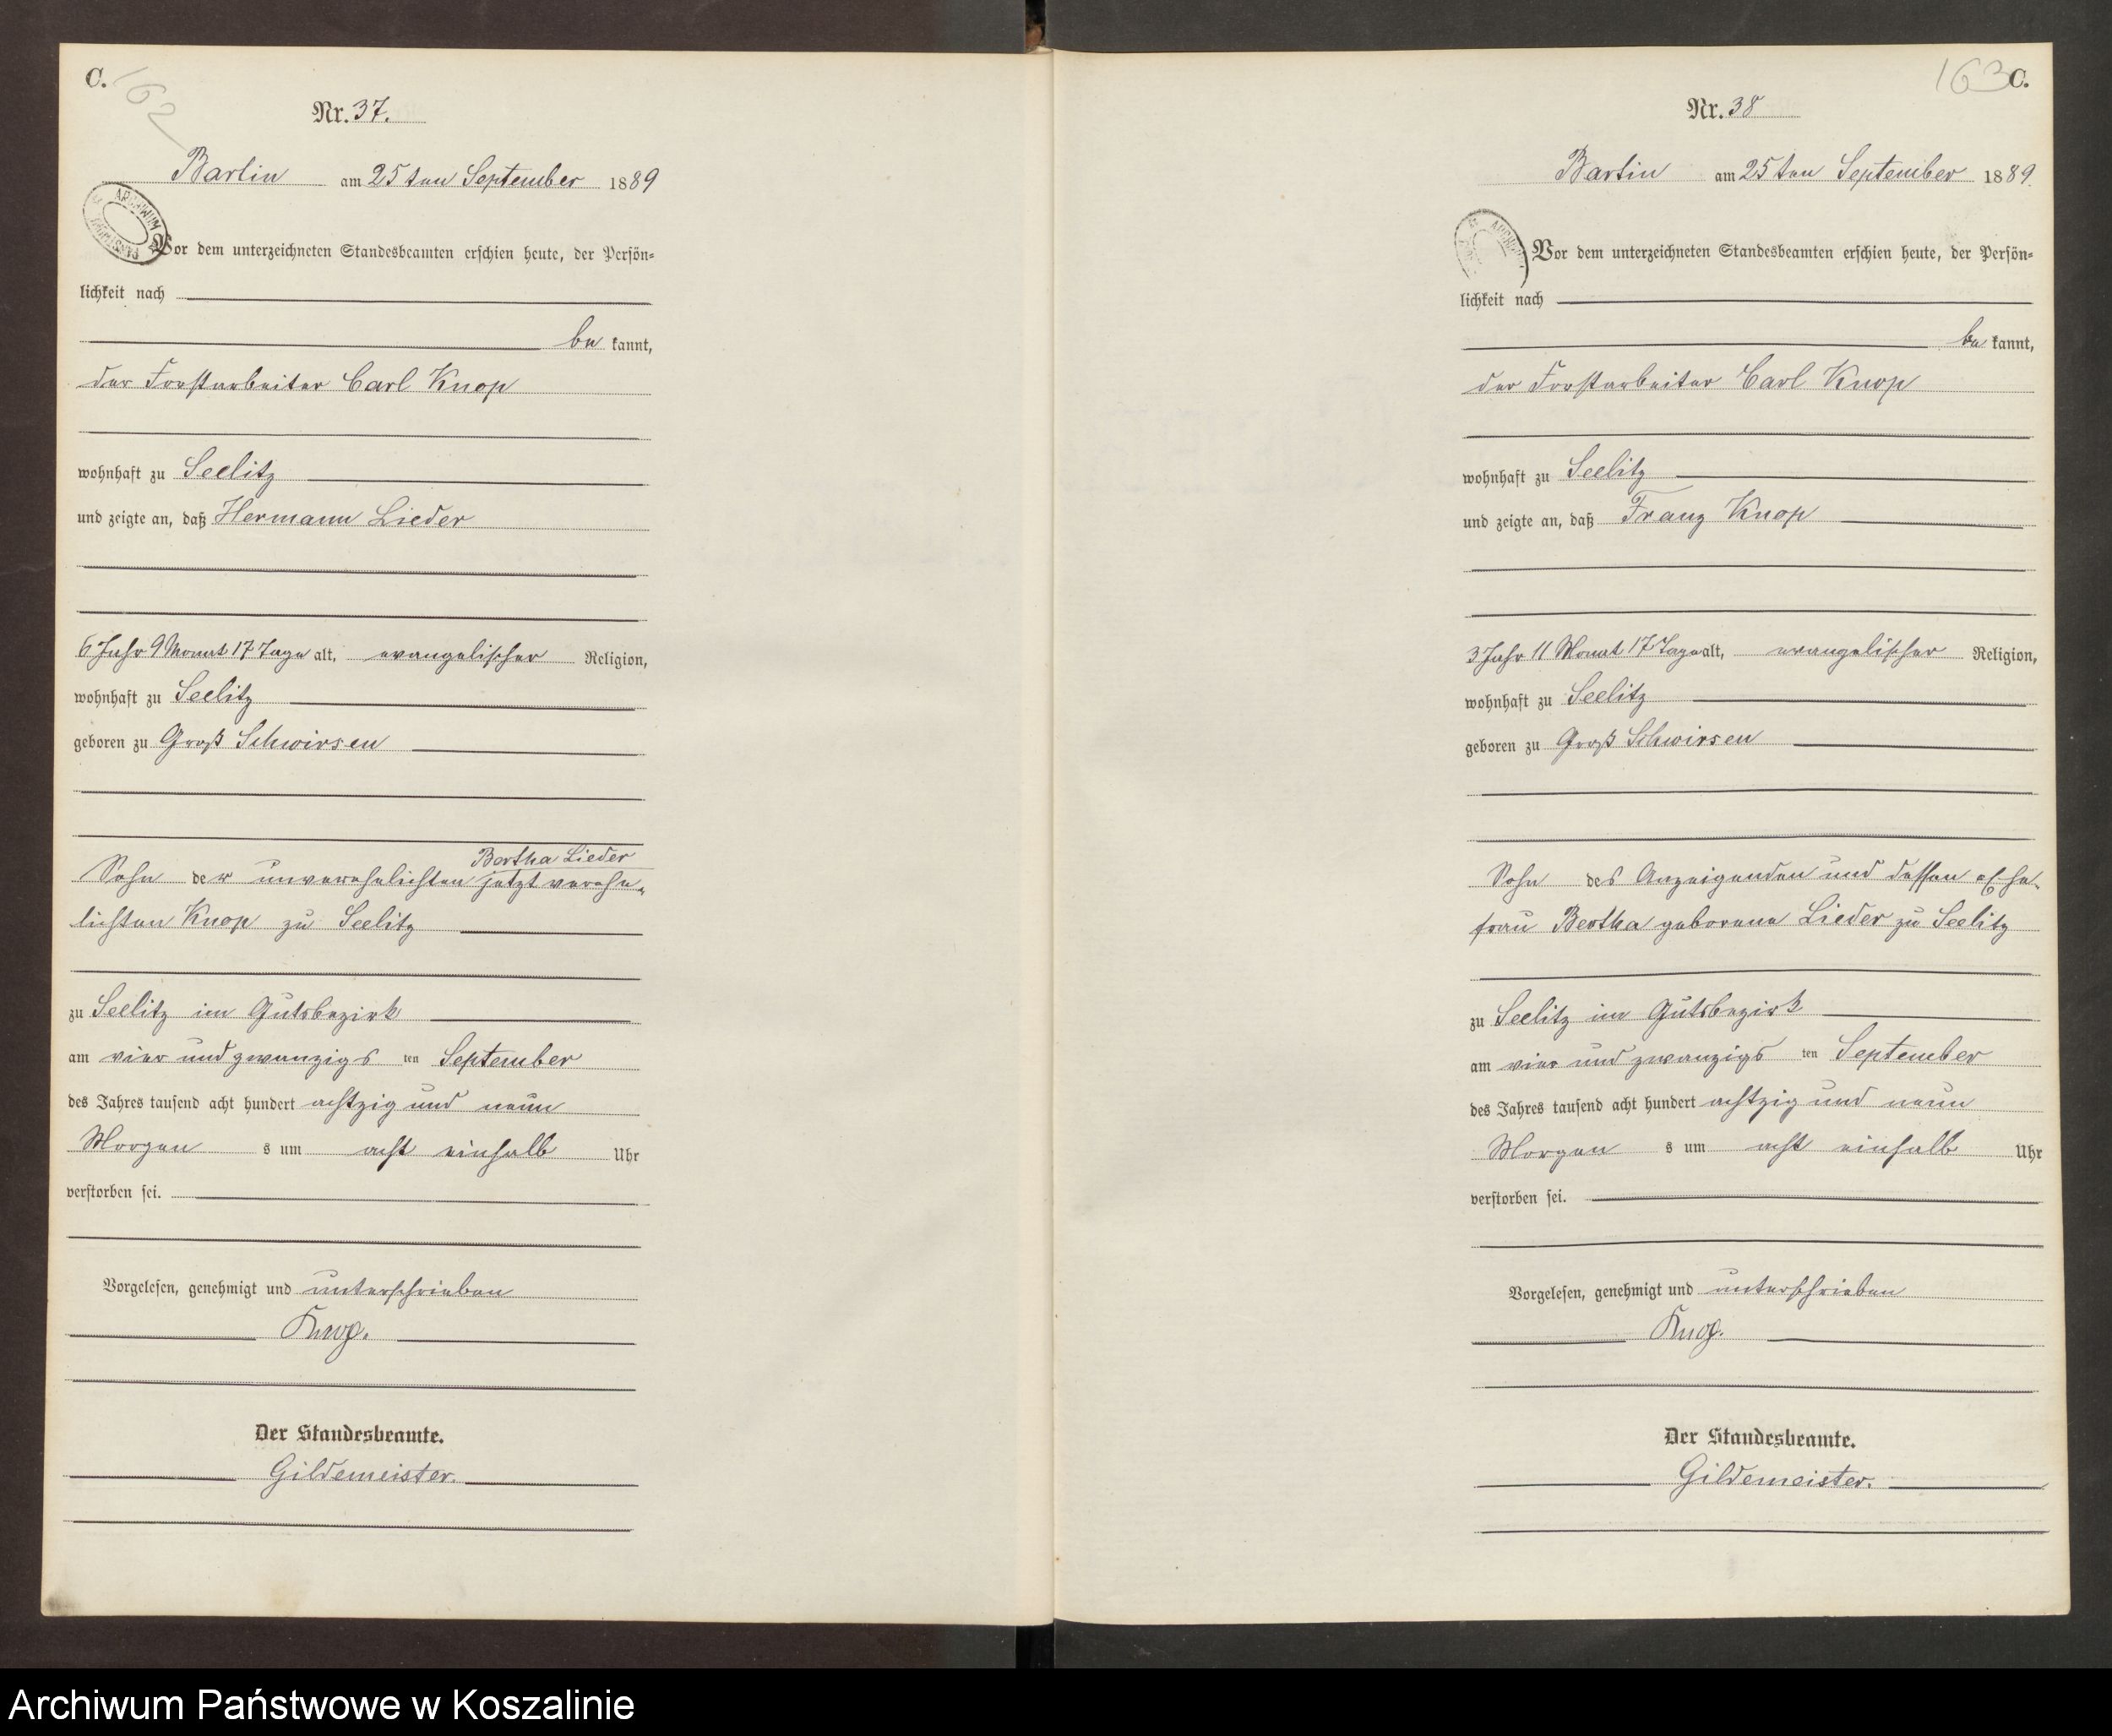 C.
162
Nr. 37.
Bartin am 25ten September 1889
ARCHIWUM PAŃSTWOWE
Vor dem unterzeichneten Standesbeamten erschien heute, der Persön-
lichkeit nach
be kannt,
der Forstarbeiter Carl Knop
wohnhaft zu Seelitz
und zeigte an, daß Hermann Lieder
6 Jahr 9 Monat 17 Tage alt, evangelischer Religion,
wohnhaft zu Seelitz
geboren zu Groß Schwirsen
Bertha Lieder
Sohn der unverehelichten jetzt verehe-
lichten Knop zu Seelitz
zu Seelitz im Gutsbezirk
am vier und zwanzigs ten September
des Jahres tausend acht hundert achtzig und neun
Morgen s um acht einhalb Uhr
verstorben sei.
Vorgelesen, genehmigt und unterschrieben
Knop.
Der Standesbeamte.
Gildemeister.
163 C.
Nr. 38
Bartin am 25ten September 1889.
Vor dem unterzeichneten Standesbeamten erschien heute, der Persön-
lichkeit nach
be kannt,
der Forstarbeiter Carl Knop
wohnhaft zu Seelitz
und zeigte an, daß Franz Knop
3 Jahr 11 Monat 17 Tage alt, evangelischer Religion,
wohnhaft zu Seelitz
geboren zu Groß Schwirsen
Sohn des Anzeigenden und dessen Ehe-
frau Bertha geborene Lieder zu Seelitz
zu Seelitz im Gutsbezirk
am vier und zwanzigs ten September
des Jahres tausend acht hundert achtzig und neun
Morgen s um acht einhalb Uhr
verstorben sei.
Vorgelesen, genehmigt und unterschrieben
Knop.
Der Standesbeamte.
Gildemeister.
Archiwum Państwowe w Koszalinie